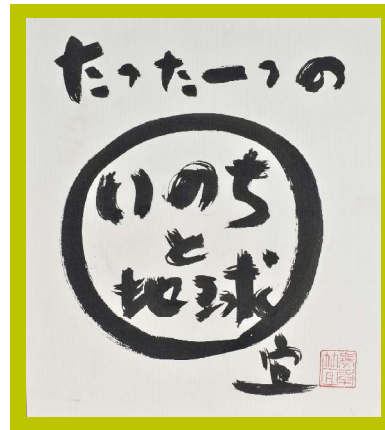 たった一つの
いのち
と
地球
宣